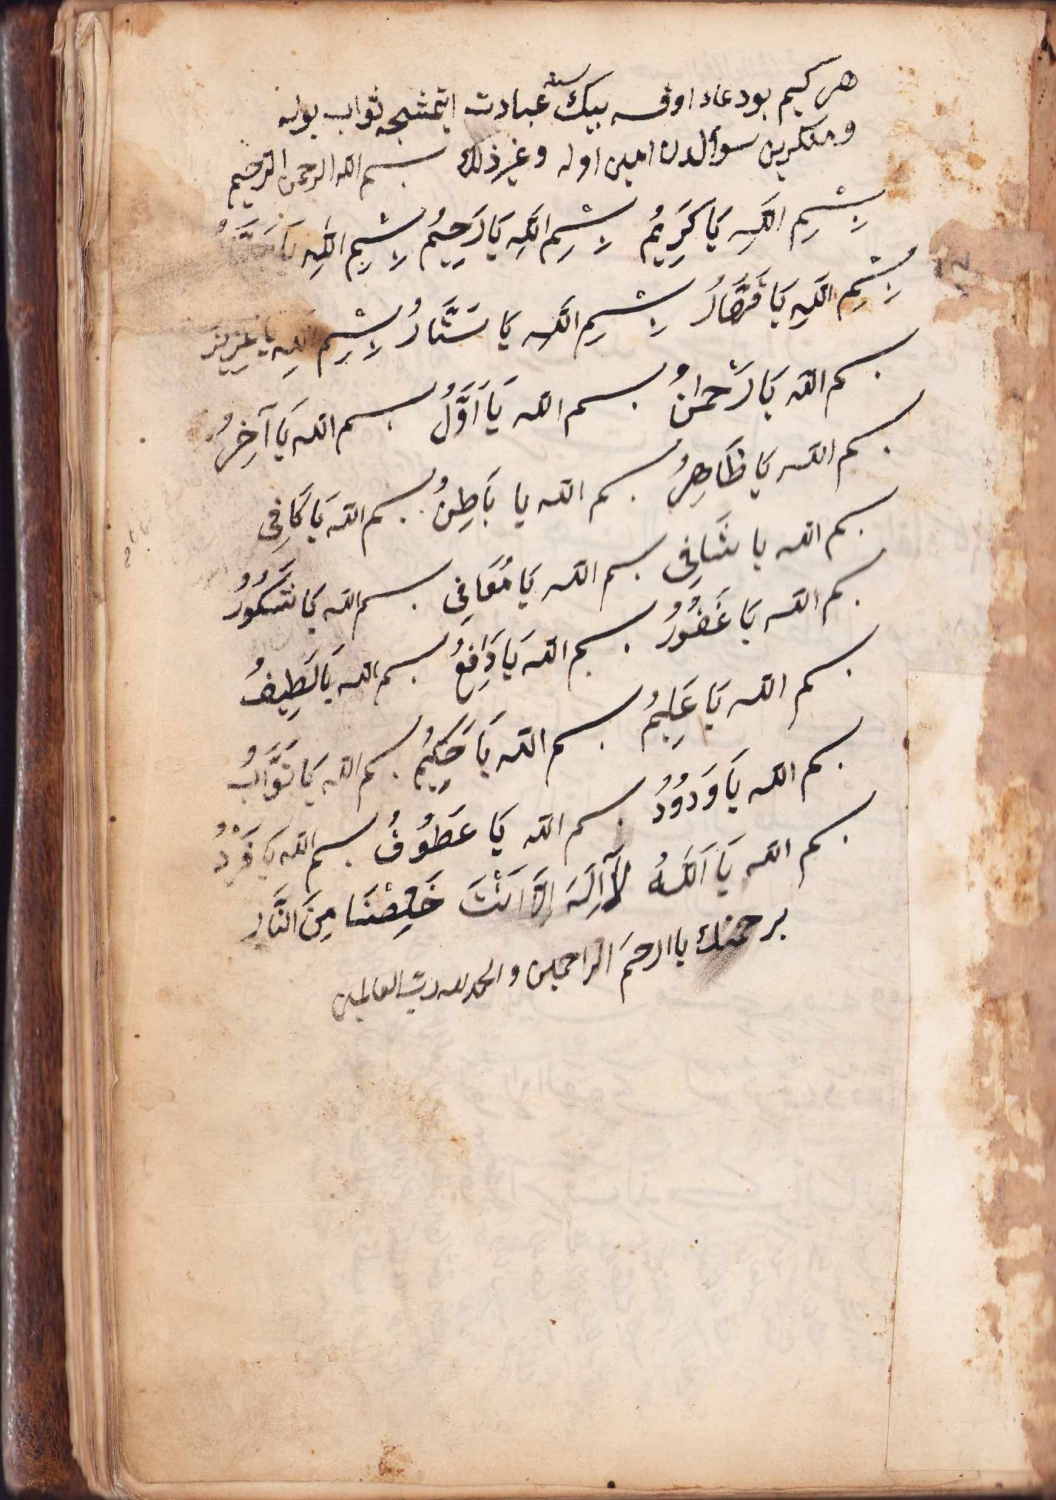 هر كيم بو دعاء اوقسه بيك سنه عبادت ايتمشجه ثواب بوله
ومنكرين سوألدن امين اوله وغير ذلك بسم الله الرحمن الرحيم
بِسْمِ اللَّهِ يَا كَرِيمُ بِسْمِ اللَّهِ يَا رَحِيمُ بِسْمِ اللَّهِ يَا
بِسْمِ اللَّهِ يَا قَهَّارُ بِسْمِ اللَّهِ يَا سَتَّارُ بِسْمِ اللَّهِ يَا عَزِيزُ
بسم الله يَا رَحْمانُ بسم الله يَا اَوَّلُ بسم الله يَا آخِرُ
بسم الله يَا ظَاهِرُ بسم الله يا بَاطِنُ بسم الله يَا كَافِى
بسم الله يا شَافِى بسم الله يَا مُعَافِى بسم الله يَا شَكُورُ
بسم الله يَا غَفُورُ بسم الله يَا دَافِعُ بسم الله يَا لَطِيفُ
بسم الله يَا عَلِيمُ بسم الله يَا حَكِيمُ بسم الله يَا تَوَّابُ
بسم الله يَا وَدُودُ بسم الله يَا عَطُوفُ بسم الله يَا فَرْدُ
بسم الله يَا اَللَّهُ لَآاِلَهَ اِلَّا اَنْتَ خَلِصْنَا مِنَ النَّار
برحمتك يا ارحمَ الراحمين والحمد لله رب العالمين